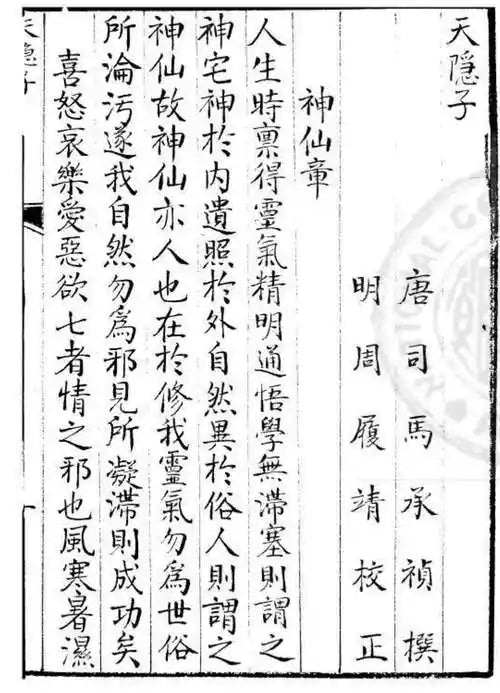 天隱子
唐司馬承禎撰
明周履靖校正
神仙章
人生時禀得靈氣精明通悟學無滯塞則謂之
神宅神於内遺照於外自然異於俗人則謂之
神仙故神仙亦人也在於修我靈氣勿爲世俗
所淪污遂我自然勿爲邪見所凝滯則成功矣
喜怒哀樂愛惡欲七者情之邪也風寒暑濕
天隱子